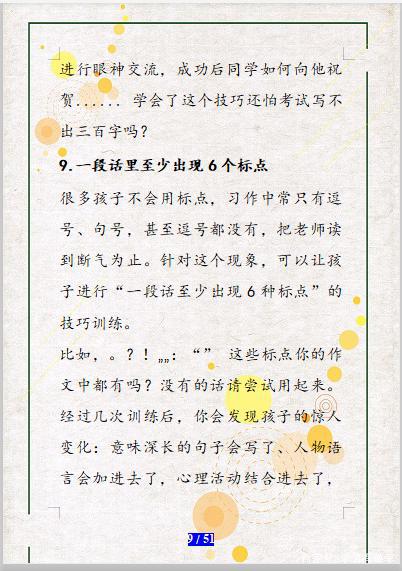 进行眼神交流，成功后同学如何向他祝
贺...... 学会了这个技巧还怕考试写不
出三百字吗？
9.一段话里至少出现 6 个标点
很多孩子不会用标点，习作中常只有逗
号、句号，甚至逗号都没有，把老师读
到断气为止。针对这个现象，可以让孩
子进行“一段话至少出现 6 种标点”的
技巧训练。
比如，。？！„„：“” 这些标点你的作
文中都有吗？没有的话请尝试用起来。
经过几次训练后，你会发现孩子的惊人
变化：意味深长的句子会写了、人物语
言会加进去了，心理活动结合进去了，
9 / 51